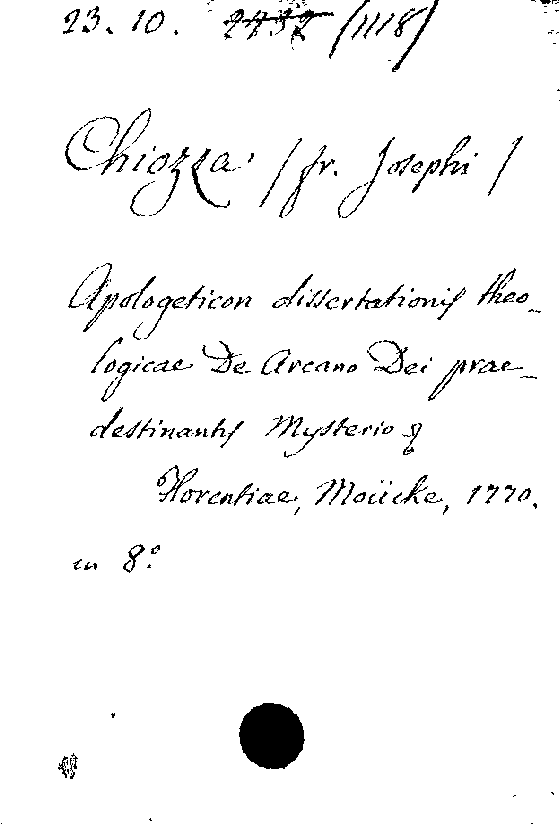 23. 10. 2432 (1118)
Chiozza / fr. Josephi /
Apologeticon dissertationis theo-
logicae De Arcano Dei prae-
destinantis Mysterio &
Florentiae, Moücke, 1770.
in 8º